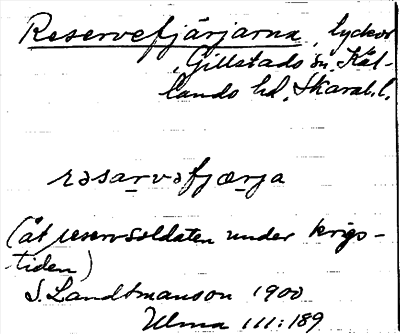 Reservefjärjarna, lyckor
Gillstads sn. Käl-
lands hd, Skarab.l.
rəsarvəfjærja
(åt reservsoldaten under krigs-
tiden)
S. Landtmanson 1900
Ulma 111:189